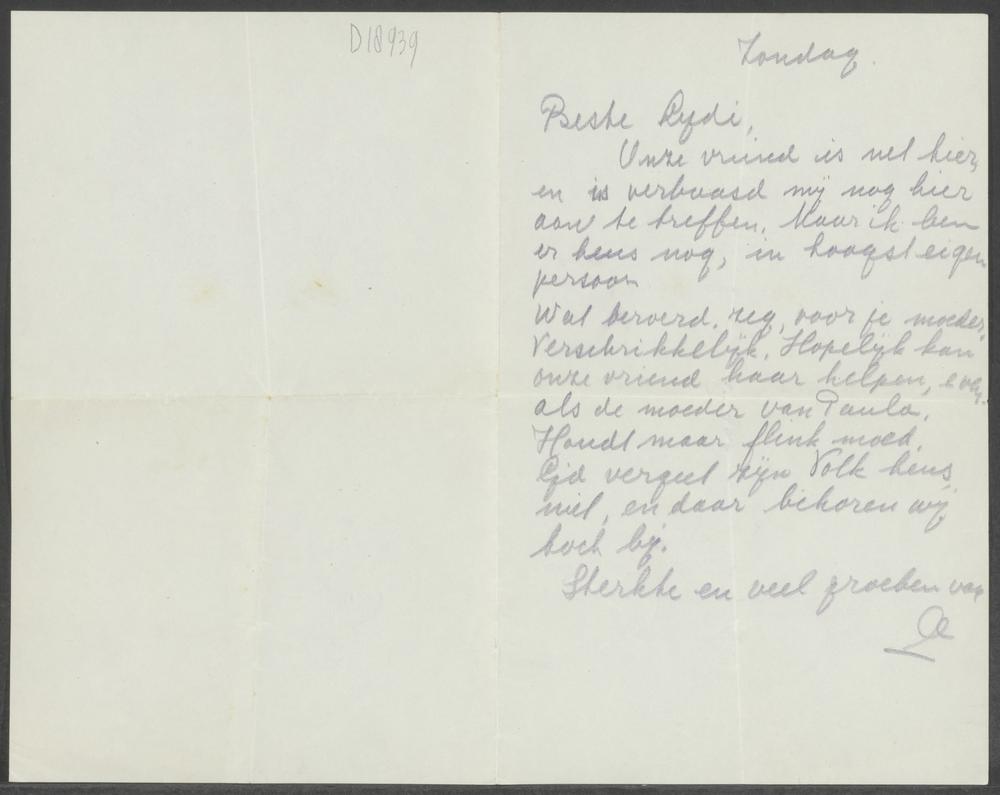 D18939
Zondag.
Beste Lydi,
Onze vriend is net hier,
en is verbaasd mij nog hier
aan te treffen. Maar ik ben
er heus nog, in hoogst eigen
persoon
Wat beroerd, zeg, voor je moeder.
Verschrikkelijk. Hopelijk kan
onze vriend haar helpen, even-
als de moeder van Paula.
Houdt maar flink moed.
G'd vergeet zijn Volk heus
niet, en daar behoren wij
toch bij.
Sterkte en veel groeten van